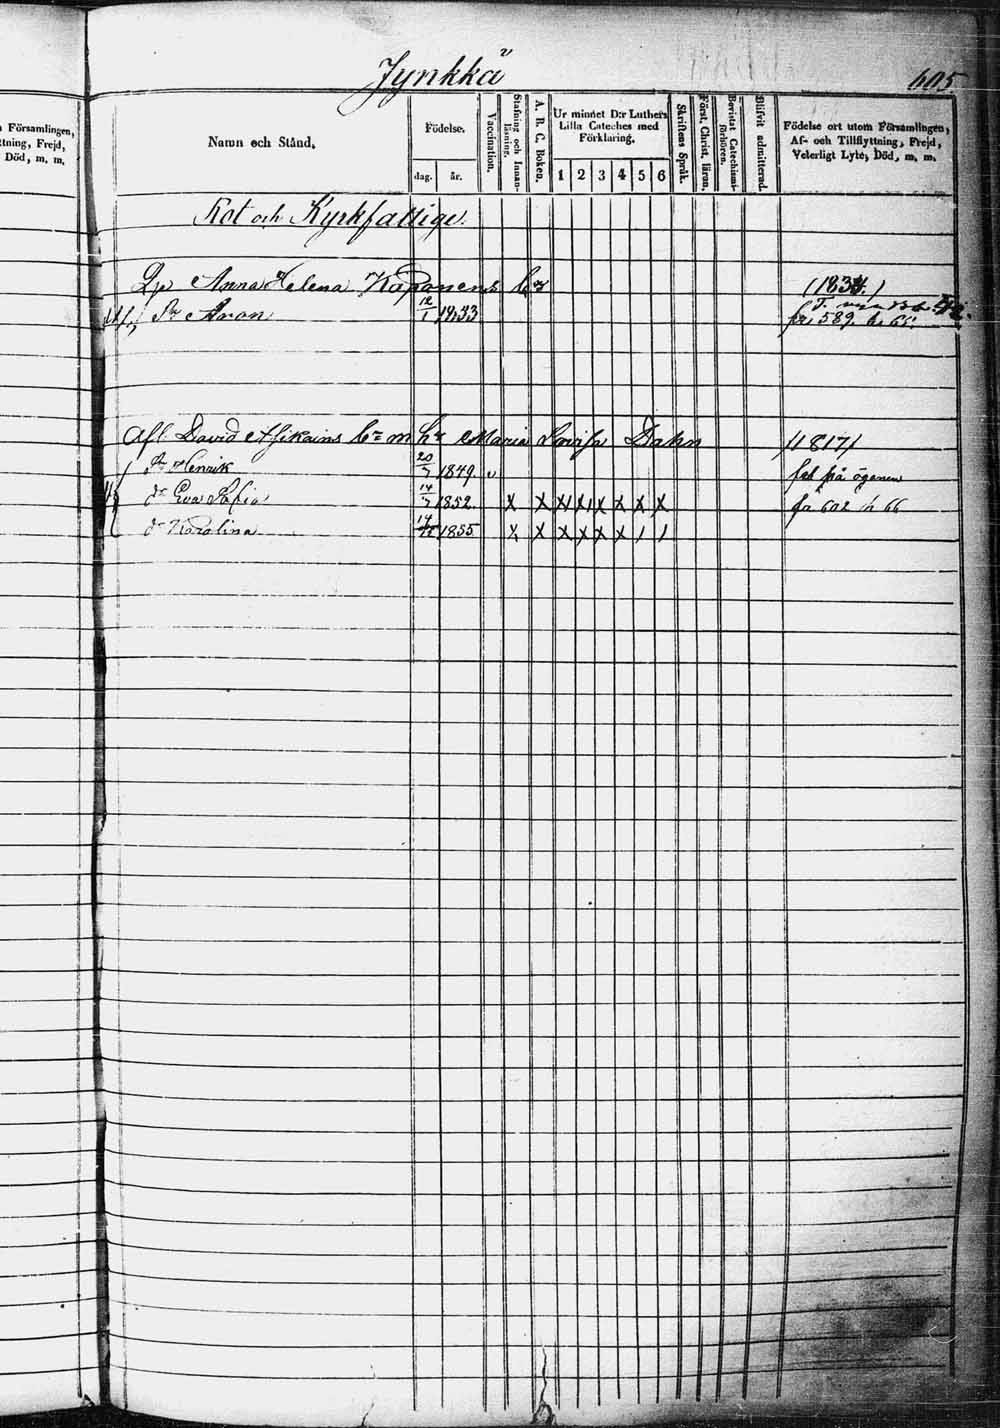 Jynkkä
605
Församlingen,
ttning, Frejd,
Död, m. m.
Namn och Stånd.
Födelse.
dag.
år.
Vaccination.
Stafning och Innanläsning.
A. B. C. Boken.
Ur minnet D:r Luthers
Lilla Cateches med
Förklaring.
1 2 3 4 5 6
Skriftens Språk.
Först. Christ. läran.
Bevistat Catechismiförhören.
Blifvit admitterad.
Födelse ort utom Församlingen,
Af- och Tillflyttning, Frejd,
Veterligt Lyte, Död, m. m.
Rot och Kyrkfattige.
Anna Helena Kaponens (1834)
Sr Aron 12/1 1833 fr. 589.
Afl. David Asikains br m hr Maria Lovisa Dahn /1817/
Sr Henrik 20/7 1849 fel på ögonen
dr Eva Sofia 14/7 1852 X X X X X X X X fr 602 66
dr Karolina 1855 X X X X X X / /